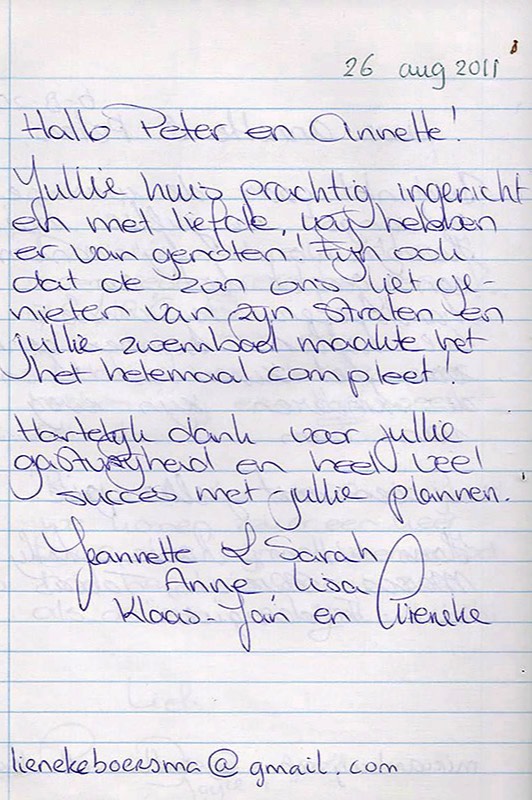 26 aug 2011
Hallo Peter en Annette!
Jullie huis prachtig ingericht
en met liefde, wij hebben
er van genoten! Fijn ook
dat de zon ons liet ge-
nieten van zijn stralen en
jullie zwembad maakte het
het helemaal compleet!
Hartelijk dank voor jullie
gastvrijheid en heel veel
succes met jullie plannen.
Jeannette & Sarah
Anne Lisa
Klaas-Jan en Lieneke
lienekeboersma@gmail.com